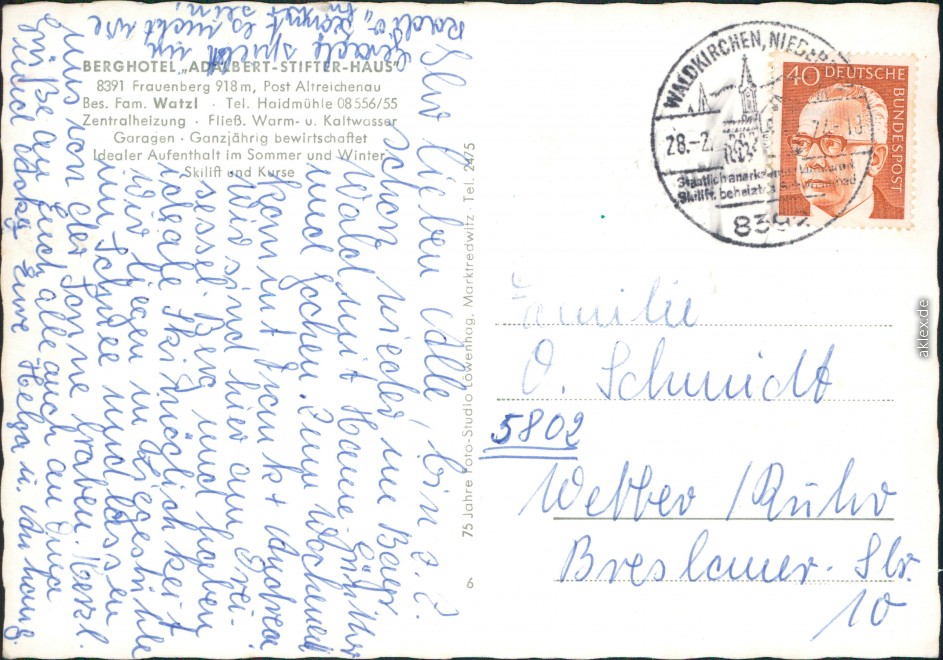 BERGHOTEL „ADALBERT-STIFTER-HAUS“
8391 Frauenberg 918 m, Post Altreichenau
Bes. Fam. Watzl · Tel. Haidmühle 08556/55
Zentralheizung · Fließ. Warm- u. Kaltwasser
Garagen · Ganzjährig bewirtschaftet
Idealer Aufenthalt im Sommer und Winter
Skilift und Kurse
Ihr lieben Alle, bin z. Z.
schon wieder im Bayr.
Wald mit Hanne,
und Jochen. Zum Wochenend
kommt Frank + Andrea
Wir sind hier am Drei-
sessel-Berg und haben
ideale Skimöglichkeit
Wir liegen in Liegestühle
im Schnee und lassen
uns von der Sonne braten. Herzl.
Grüße an Euch alle auch an Oma
Eure Helga u.
gerade spielt im
Radio es nicht
75 Jahre Foto-Studio Löwenhag, Marktredwitz, Tel. 2475
6
WALDKIRCHEN, NIEDERB
28.-2.
Staatlich anerkannter
Skilift, beheiztes
8392
40 DEUTSCHE
BUNDESPOST
Familie
O. Schmidt
5802
Wetter /Ruhr
Breslauer-Str.
10
aklex.de